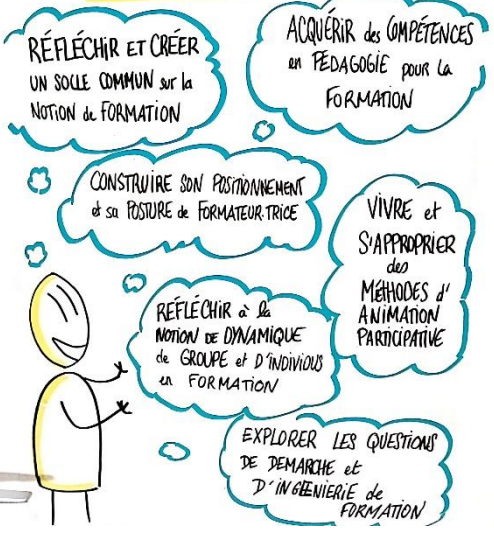 RÉFLÉCHIR ET CRÉER
UN SOCLE COMMUN sur la
NOTION de FORMATION
ACQUÉRIR des COMPÉTENCES
en PÉDAGOGIE pour la
FORMATION
CONSTRUIRE SON POSITIONNEMENT
et sa POSTURE de FORMATEUR·TRICE
VIVRE et
S'APPROPRIER
des
MÉTHODES d'
ANIMATION
PARTICIPATIVE
RÉFLÉCHIR à la
NOTION DE DYNAMIQUE
de GROUPE et D'INDIVIDUS
en FORMATION
EXPLORER LES QUESTIONS
DE DEMARCHE et
D'INGÉNIERIE de
FORMATION